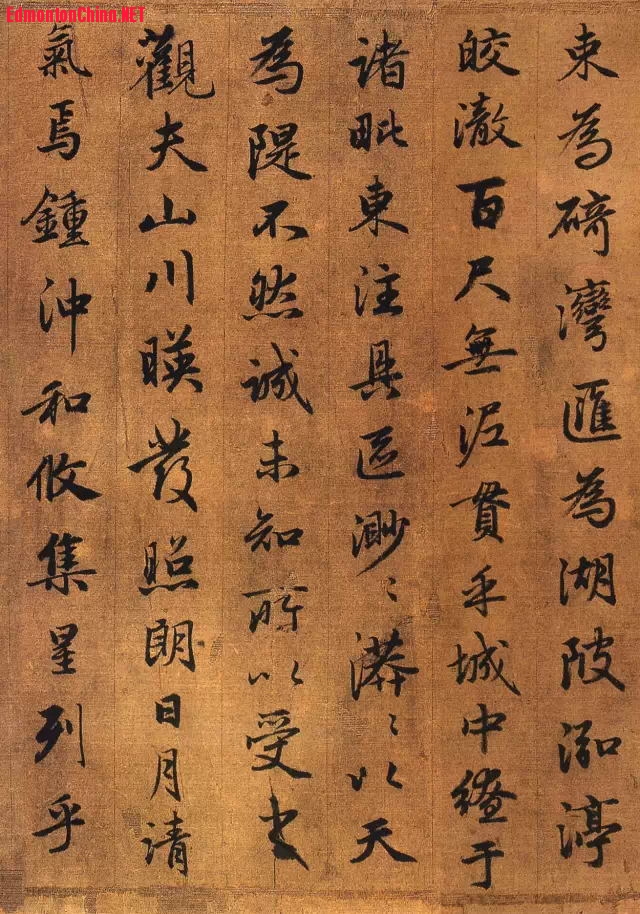 EdmontonChina.NET
東為碕灣匯為湖陂泓渟
皎澈百尺無泥貫乎城中繚于
諸毗東注具區渺〻漭〻以天
為隄不然誠未知所以受之
觀夫山川暎發照朗日月清
氣焉鍾沖和攸集星列乎